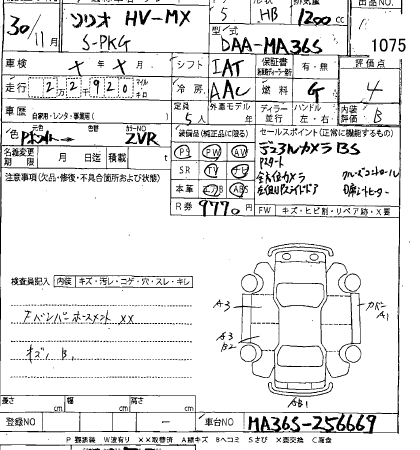 30/11月 ソリオ HV-MX 5 HB 1200cc
S-PKG 型式 DAA-MA36S 1075
車検 × 年 × 月 シフト IAT 保証書 有・無 評価点
走行 22920 マイル キロ 冷房 AAC 燃料 G 4
車歴 自家用・レンタ・事業用 定員 5人 外車モデル 年 ディーラー 並行 ハンドル 左・右 内装 B
色 元色 Pホワイト→ 色替 カラーNO ZVR 装備品(純正品に限る) セールスポイント(正常に機能するもの)
名義変更期限 月 日迄 積載 t PS PW AW デュアルカメラBS
注意事項(欠品・修復・不具合箇所および状態) SR TV ナビ Pスタート
全方位カメラ クルーズコントロール
本革 エアB ABS 左側Pスライドドア シートヒーター
R券 9770 FW キズ・ヒビ割・リペア跡・X要
検査員記入 内装 キズ・汚レ・コゲ・穴・スレ・キレ
A3 カバー A1
A3
B2
キズ、B、
AB1
長さ cm 幅 cm 高さ cm
登録NO ー 車台NO MA36S-256669
P要塗装 W波有り XX取替済 A線キズ Bヘコミ Sさび X要交換 C腐食